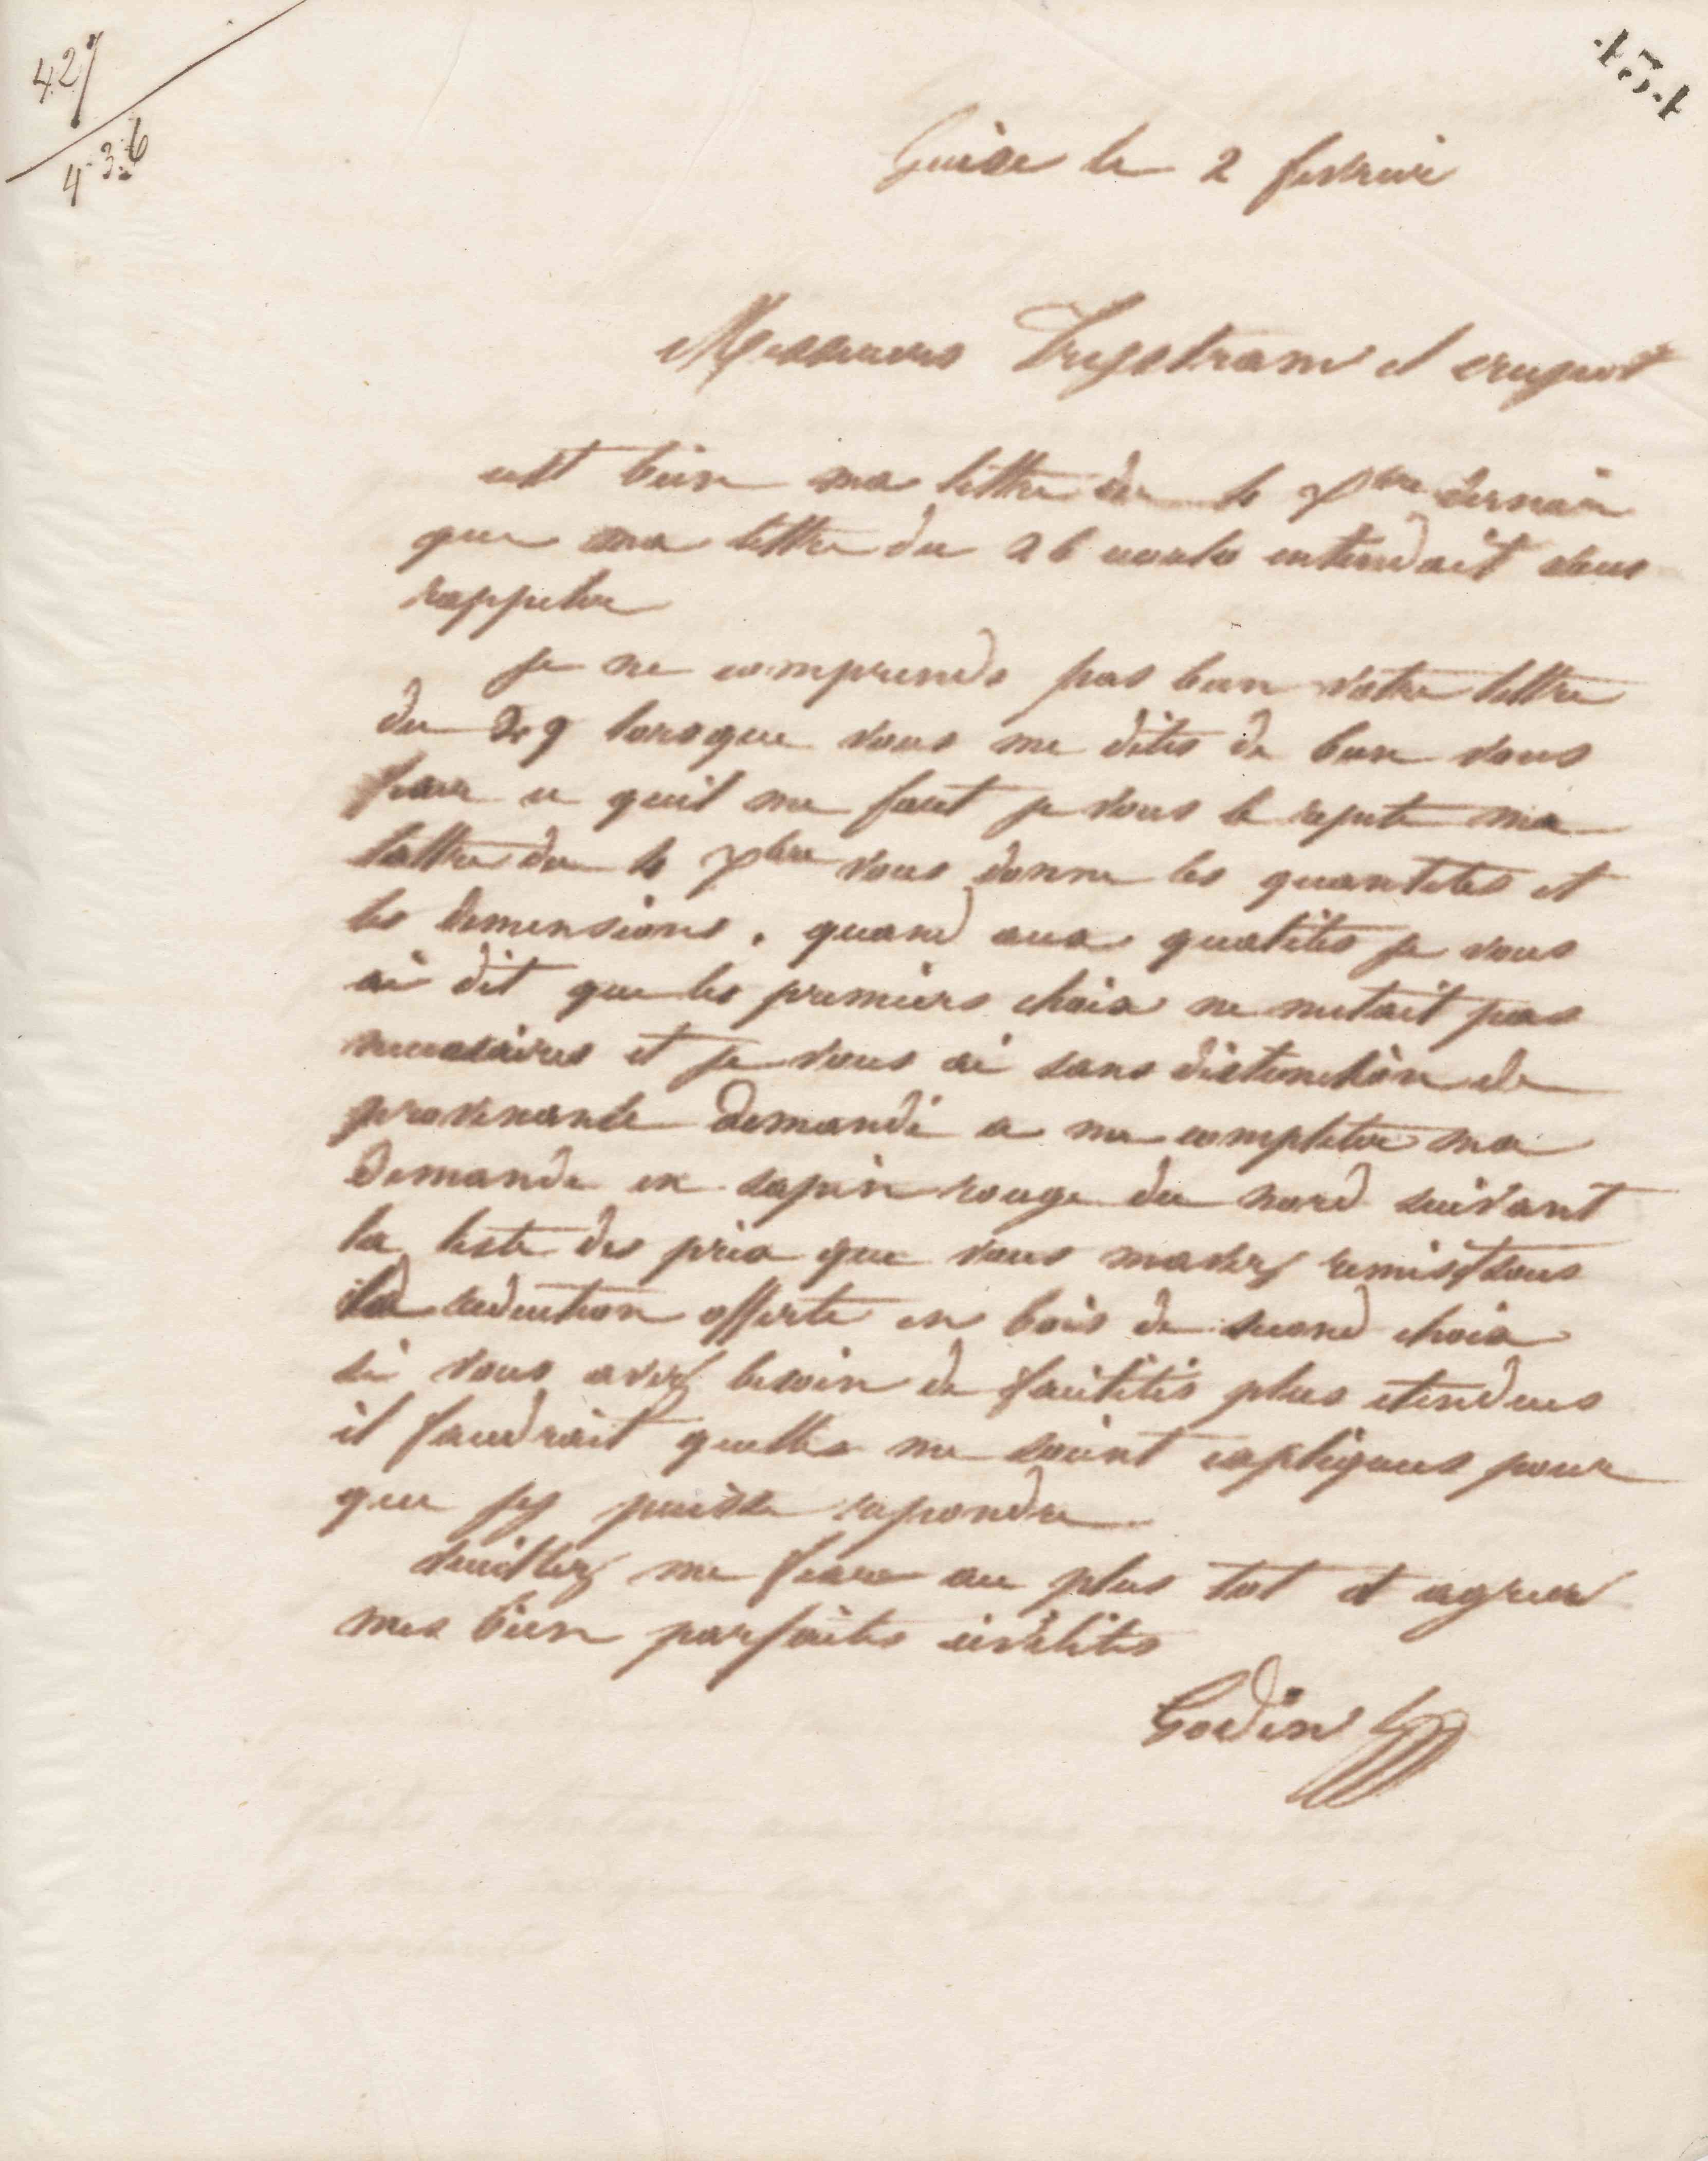 427
436
431
Guise le 2 fevrier
Messieurs et
cest bien ma lettre du 10 Xbre dernier
que ma lettre du 26 ecoulé entendait vous
rappeler
je ne comprends pas bien votre lettre
du 29 lorsque vous me dites de bien vous
fixer ce quil me faut je vous le repete ma
lettre du 10 Xbre vous donne les quantités et
les dimensions. quand aux qualités je vous
ai dit que les premiers choix ne metait pas
necessaires et je vous ai sans distinction de
provenance demandé a me completer ma
demande en sapin rouge du nord suivant
la liste des prix que vous mavez remis sous
la reduction offerte en bois de second choix
si vous avez besoin de facilités plus etendues
il faudrait quelles me soient expliquees pour
que jy puisse repondre
veuillez me fixer au plus tot et agreer
mes bien parfaites civilités
Godin